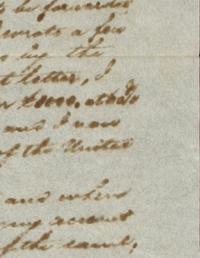 to be forwarded
wrote a few
by the
letter, I
and I now
of the United
and where
my account
of the same,